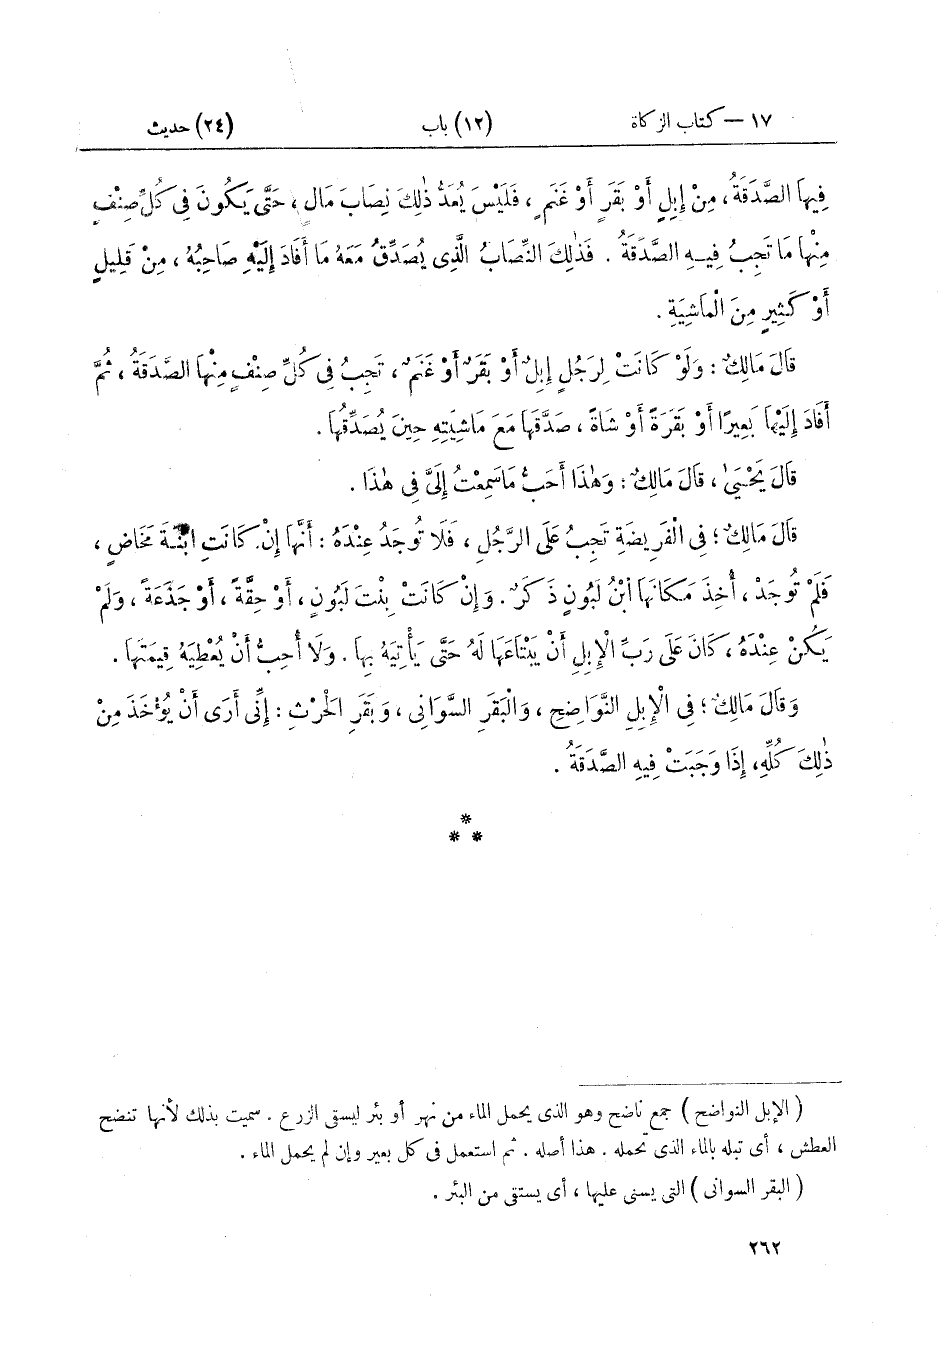 ١٧ — كتاب الزكاة (١٢) باب (٢٤) حديث
فِيهَا الصَّدَقَةُ، مِنْ إِبِلٍ أَوْ بَقَرٍ أَوْ غَنَمٍ، فَلَيْسَ يُعَدُّ ذٰلِكَ نِصَابَ مَالٍ، حَتَّى يَكُونَ فِى كُلِّ صِنْفٍ
مِنْهَا مَا تَجِبُ فِيهِ الصَّدَقَةُ. فَذٰلِكَ النِّصَابُ الَّذِى يُصَدِّقُ مَعَهُ مَا أَفَادَ إِلَيْهِ صَاحِبُهُ، مِنْ قَلِيلٍ
أَوْ كَثِيرٍ مِنَ الْمَاشِيَةِ.
قَالَ مَالِكٌ: وَلَوْ كَانَتْ لِرَجُلٍ إِبِلٌ أَوْ بَقَرٌ أَوْ غَنَمٌ، تَجِبُ فِى كُلِّ صِنْفٍ مِنْهَا الصَّدَقَةُ، ثُمَّ
أَفَادَ إِلَيْهَا بَعِيرًا أَوْ بَقَرَةً أَوْ شَاةً، صَدَّقَهَا مَعَ مَاشِيَتِهِ حِينَ يُصَدِّقُهَا.
قَالَ يَحْيَىٰ، قَالَ مَالِكٌ: وَهٰذَا أَحَبُّ مَا سَمِعْتُ إِلَىَّ فِى هٰذَا.
قَالَ مَالِكٌ؛ فِى الْفَرِيضَةِ تَجِبُ عَلَى الرَّجُلِ، فَلَا تُوجَدُ عِنْدَهُ: أَنَّهَا إِنْ كَانَتِ ابْنَةَ مَخَاضٍ،
فَلَمْ تُوجَدْ، أُخِذَ مَكَانَهَا ابْنُ لَبُونٍ ذَكَرٌ. وَإِنْ كَانَتْ بِنْتَ لَبُونٍ، أَوْ حِقَّةً، أَوْ جَذَعَةً، وَلَمْ
يَكُنْ عِنْدَهُ، كَانَ عَلَى رَبِّ الْإِبِلِ أَنْ يَبْتَاعَهَا لَهُ حَتَّى يَأْتِيَهُ بِهَا. وَلَا أُحِبُّ أَنْ يُعْطِيَهُ قِيمَتَهَا.
وَقَالَ مَالِكٌ؛ فِى الْإِبِلِ النَّوَاضِحِ، وَالْبَقَرِ السَّوَانِى، وَبَقَرِ الْحَرْثِ: إِنِّى أَرَى أَنْ يُؤْخَذَ مِنْ
ذٰلِكَ كُلِّهِ، إِذَا وَجَبَتْ فِيهِ الصَّدَقَةُ.
*
* *
(الإبل النواضح) جمع ناضح وهو الذى يحمل الماء من نهر أو بئر ليسقى الزرع. سميت بذلك لأنها تنضح
العطش، أى تبله بالماء الذى تحمله. هذا أصله. ثم استعمل فى كل بعير وإن لم يحمل الماء.
(البقر السوانى) التى يسنى عليها، أى يستقى من البئر.
٢٦٢